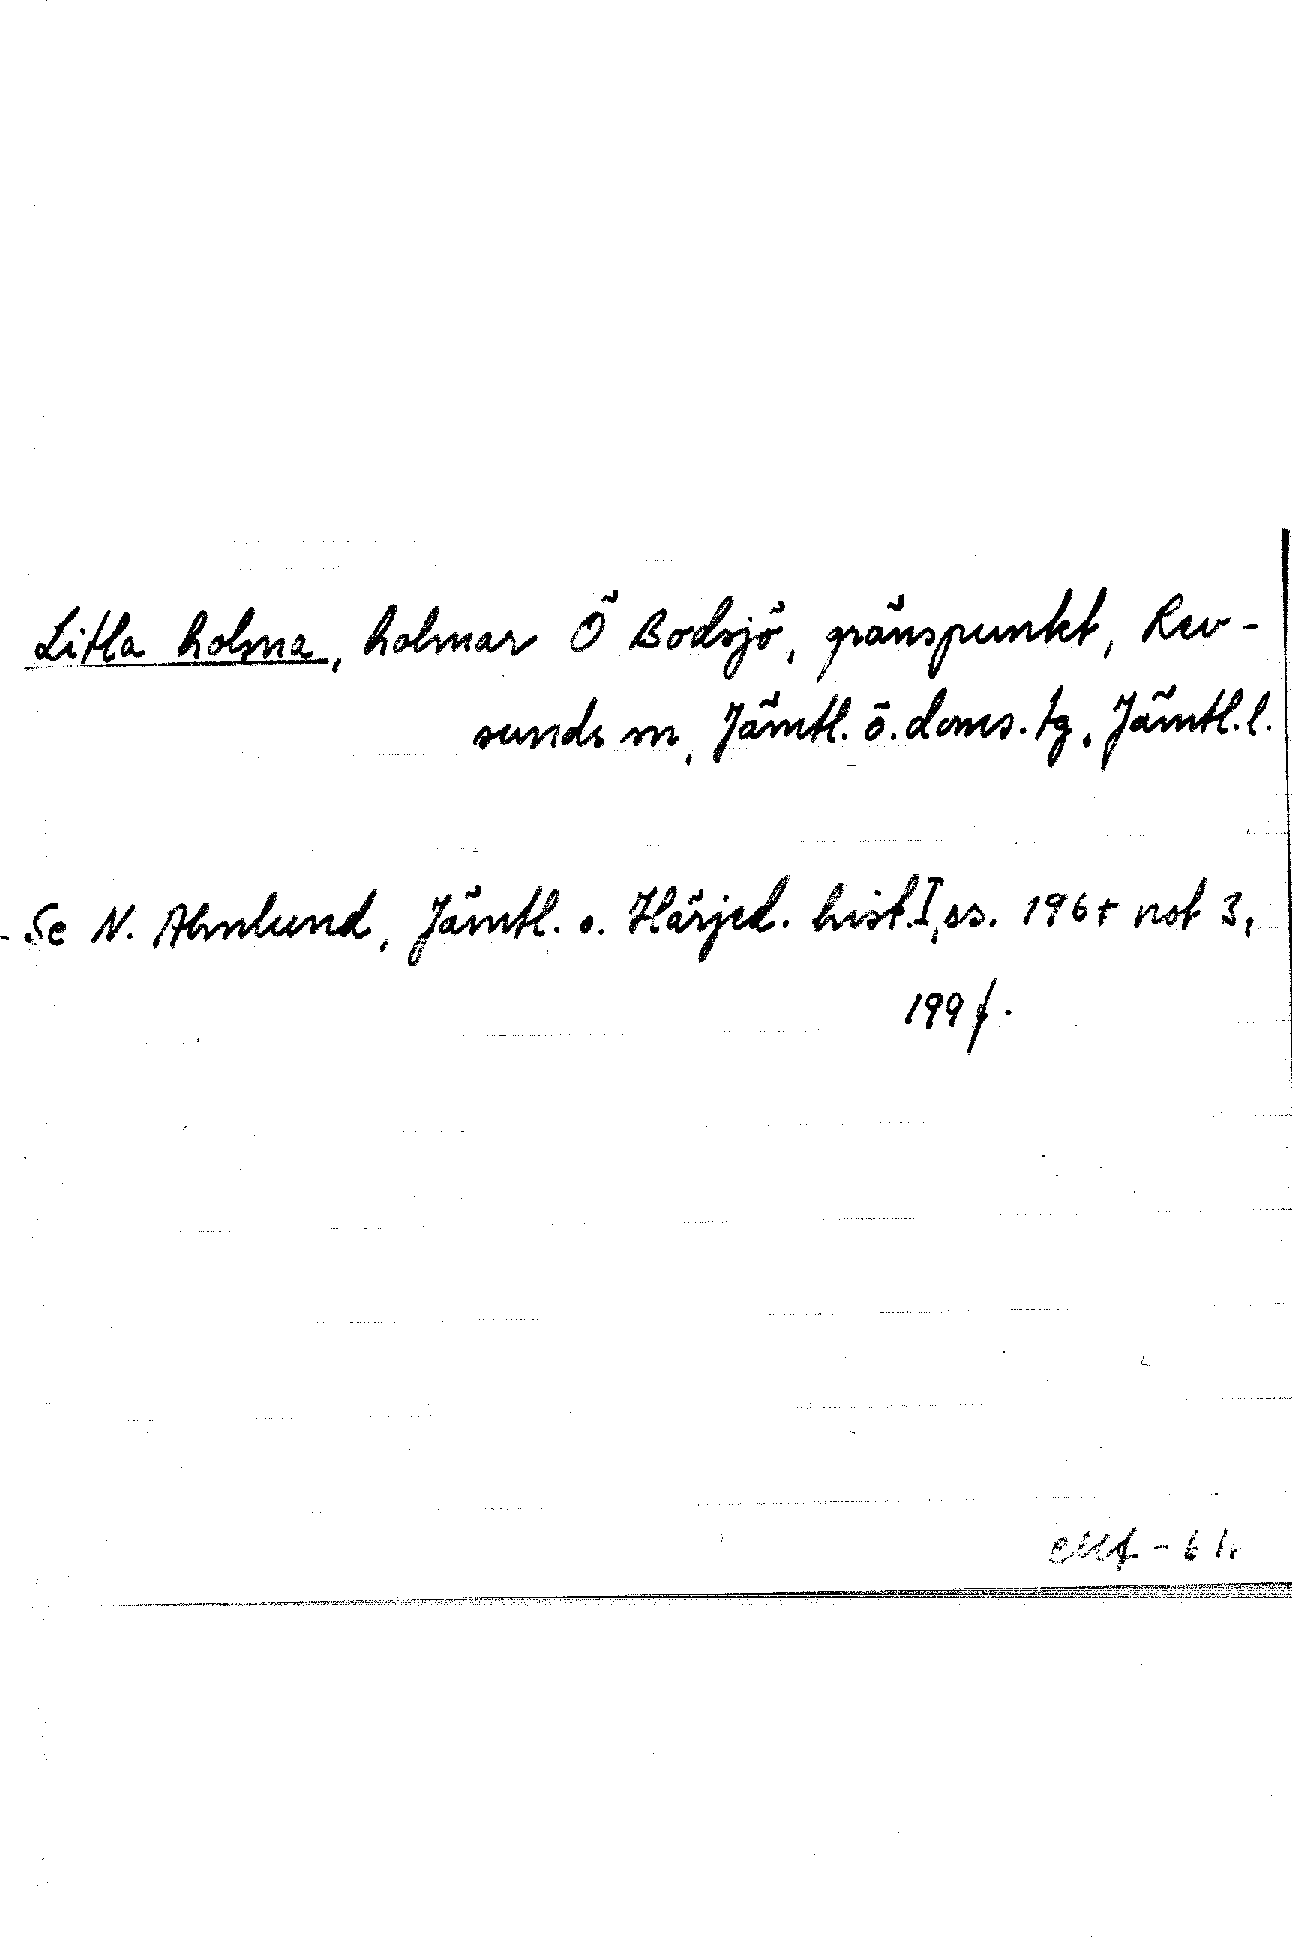 Litla holma, holmar Ö Bodsjö, gränspunkt, Rev-
sunds sn, Jämtl. ö. doms. tg, Jämtl. l.
Se N. Ahnlund, Jämtl. o. Härjed. hist. I, ss. 196 + not 3,
199 f.
- 61.